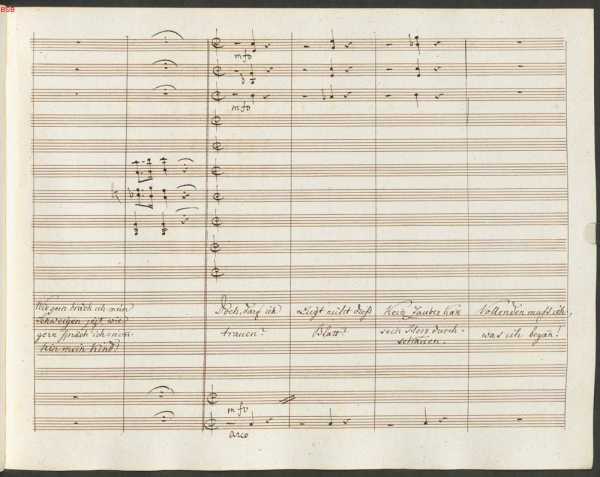 BSB
mfo
mfo
Wie gern bräch ich mein
Schweigen jezt, wie
gern spräch ich: nim
hin mein Kind!
Doch, darf ich
trauen?
Lügt nicht dieß
Blatt?
Kein Zauber kan
sein Herz durch-
schauen.
Vollenden muß ich,
was ich began!
mfo
arco